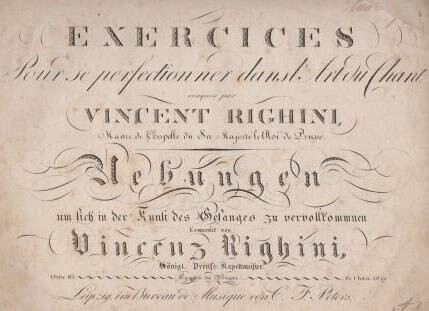 EXERCICES
Pour se perfectionner dans l'Art du Chant
composés par
VINCENT RIGHINI,
Maitre de Chapelle du Sa Majesté le Roi de Prusse.
Uebungen
um sich in der Kunst des Gesanges zu vervollkommnen
komponirt von
Vincenz Righini,
Königl. Preuss. Kapellmeister.
Leipzig, im Bureau de Musique von C. F. Peters.